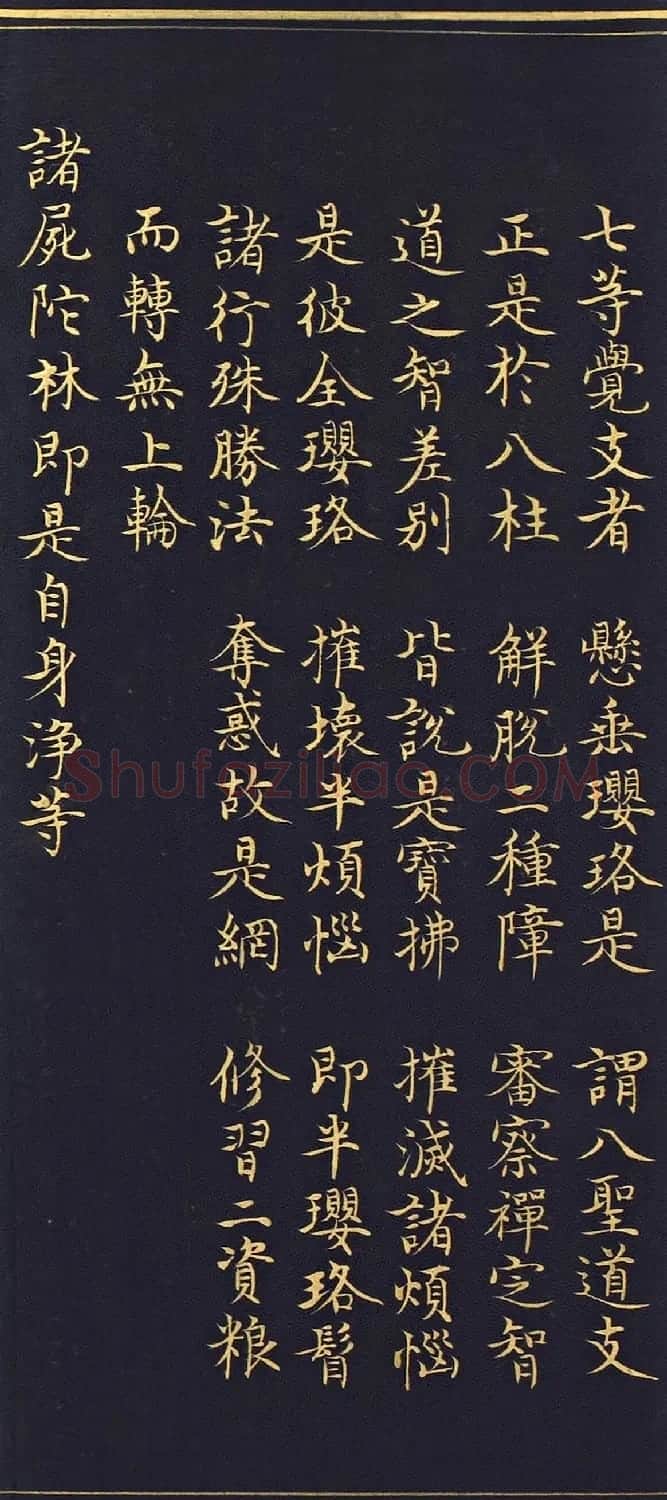 七等覺支者 懸垂瓔珞是 謂八聖道支
正是於八柱 解脫二種障 審察禪定智
道之智差別 皆說是寶拂 摧滅諸煩惱
是彼全瓔珞 摧壞半煩惱 即半瓔珞髻
諸行殊勝法 奪惑故是網 修習二資粮
而轉無上輪
諸屍陀林即是自身淨等
Shufaziliao.COM